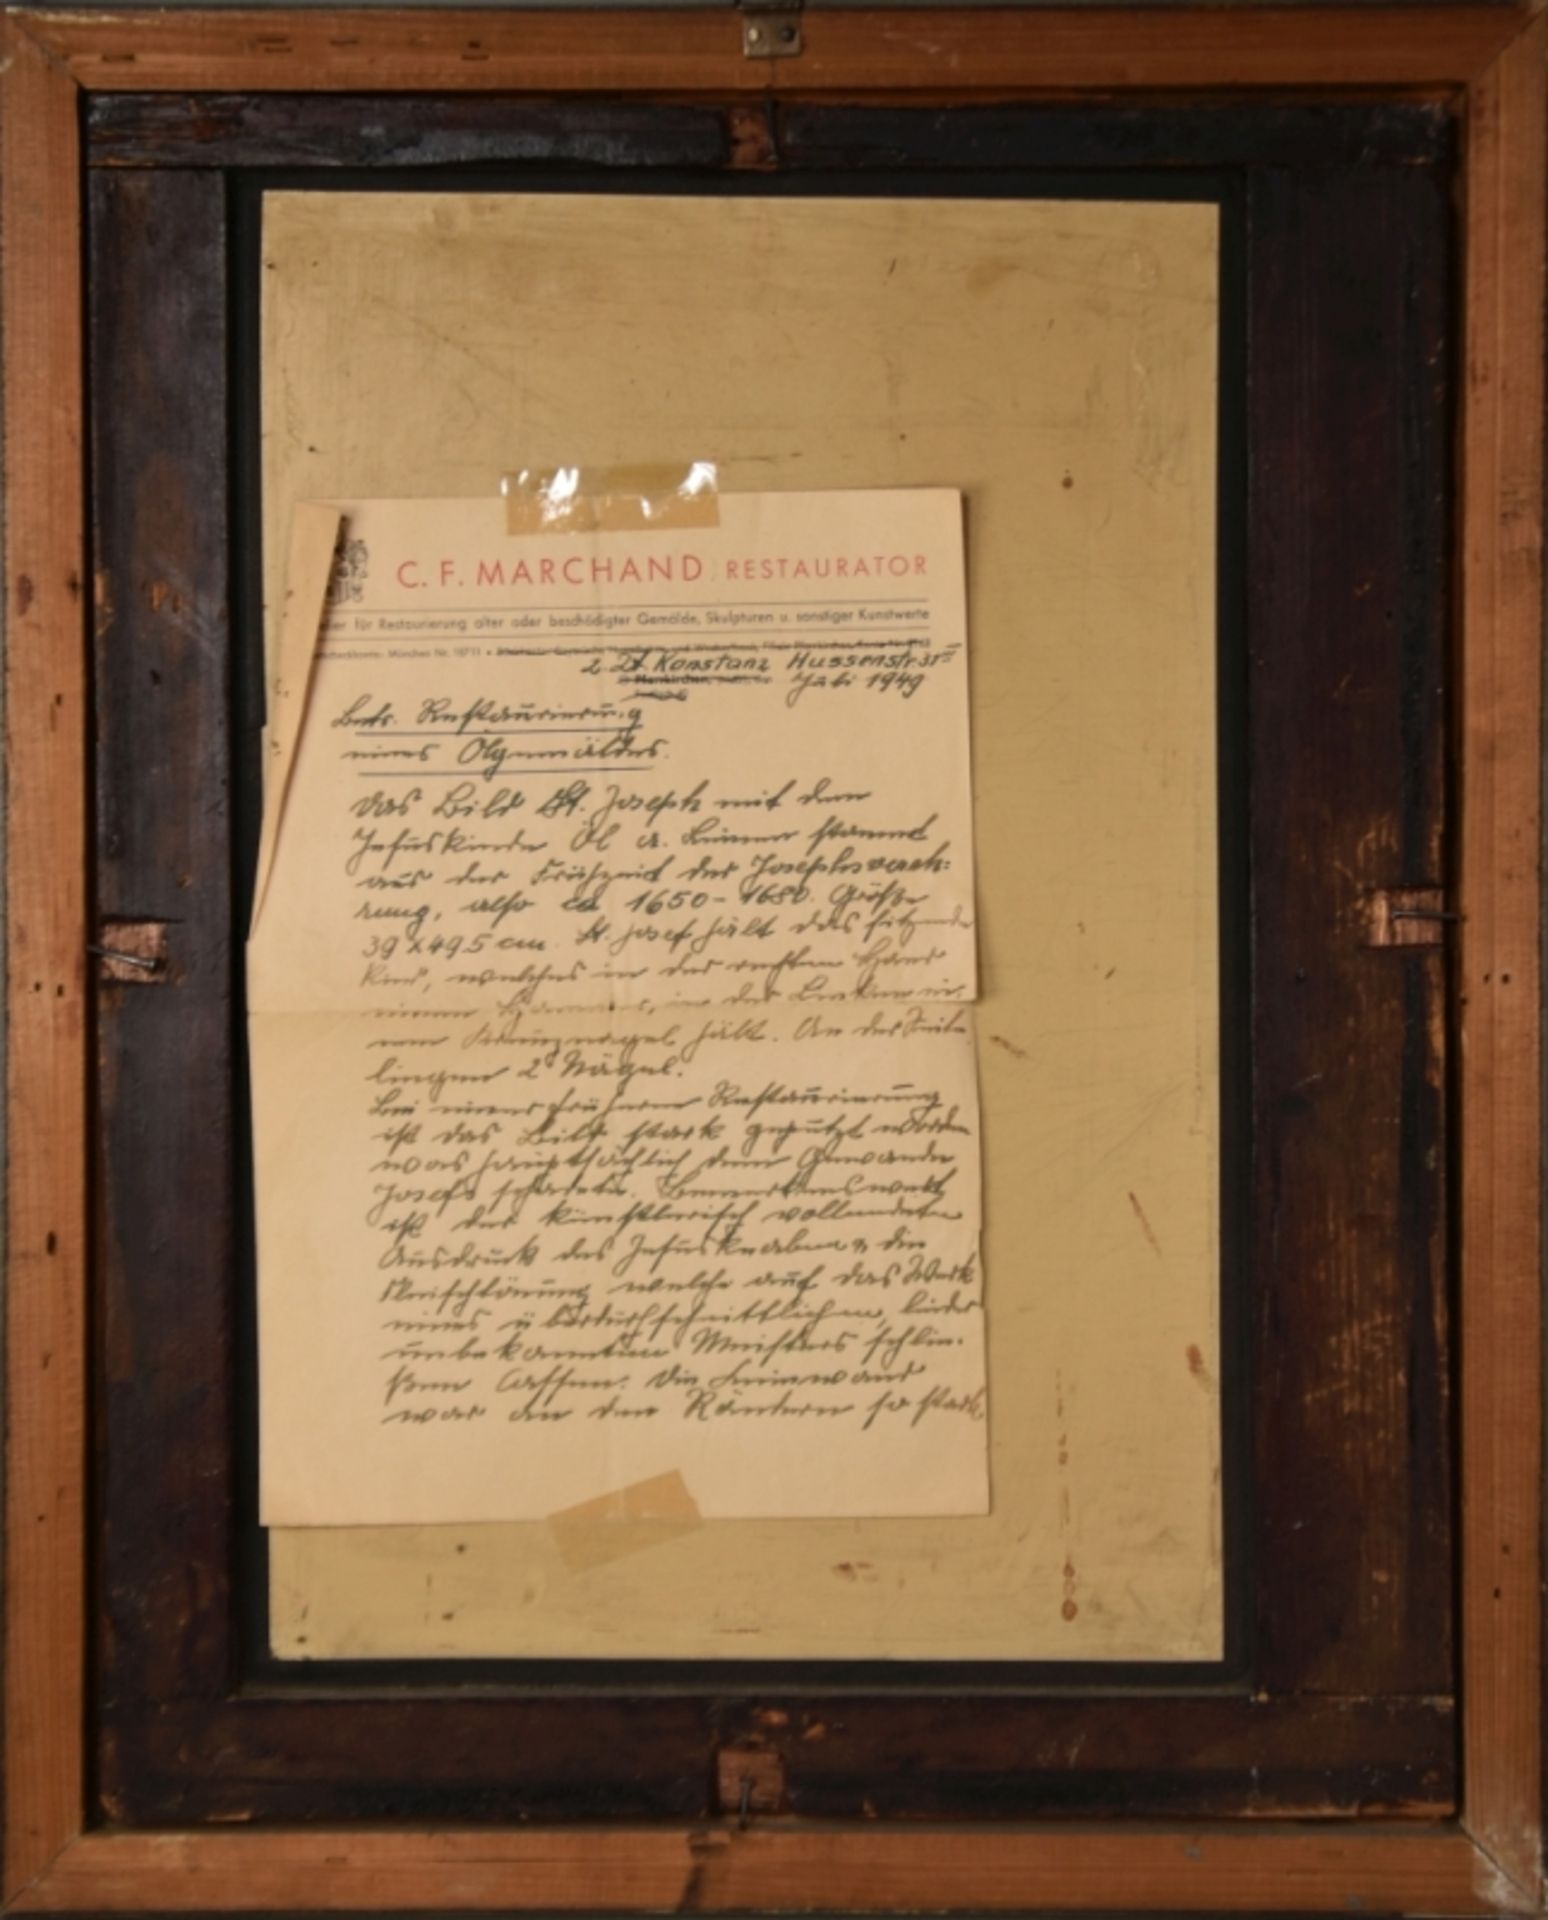 C. F. MARCHAND RESTAURATOR
für Restaurierung alter oder beschädigter Gemälde, Skulpturen u. sonstiger Kunstwerte
München Nr.
z. Zt. Konstanz Hussenstr. 31 III
Juli 1949
Betr. Restaurierung
eines Ölgemäldes.
Das Bild St. Joseph mit dem
Jesuskinde Öl a. Leinen stammt
aus der Frühzeit der Josephsvereh=
rung, also ca 1650-1680. Größe
39 x 49.5 cm. St. Josef hält das sitzende
Kind, welches in der rechten Hand
einen Hammer, in der Linken ei-
nen Kreuznagel hält. An der Seite
liegen 2 Nägel.
Bei einer früheren Restaurierung
ist das Bild stark geputzt worden
was hauptsächlich dem Gewande
Josefs schadete. Bemerkenswert
ist der künstlerisch vollendete
Ausdruck des Jesusknaben u. die
Fleischtönung welche auf das Werk
eines überdurchschnittlichen, leider
unbekannten Meisters schlie-
ßen lassen. Die Leinwand
war an den Rändern so stark